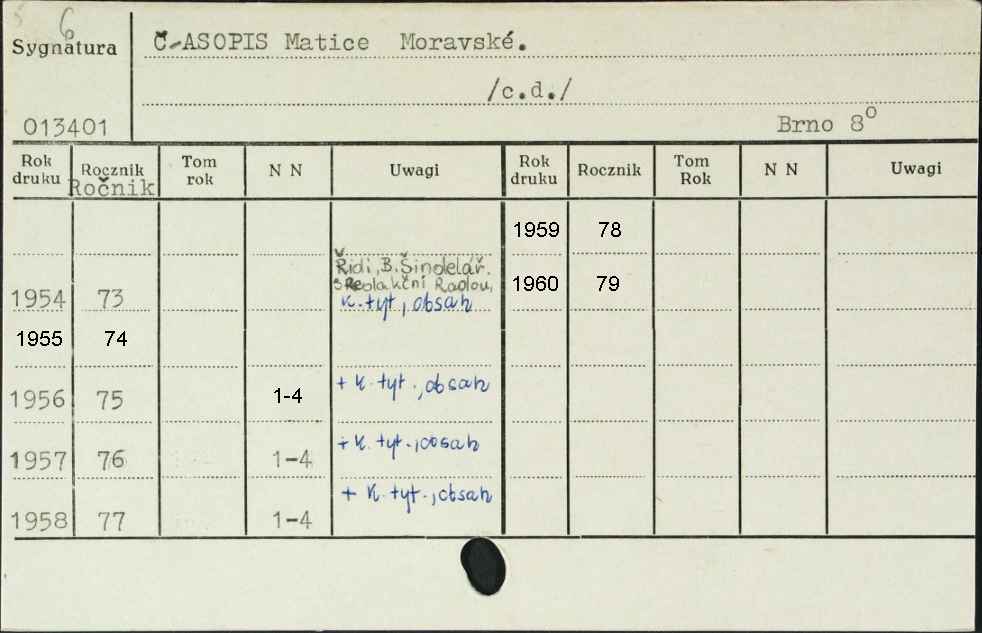 6
Sygnatura
ČASOPIS Matice Moravské.
/c.d./
013401
Brno 8º
Rok druku Rocznik Tom rok N N Uwagi Rok druku Rocznik Tom Rok N N Uwagi
Ročnik
1959 78
Řidi, B. Šindelář.
s Redakční Radou,
1954 73 K. tyt, obsah 1960 79
1955 74
1956 75 1-4 + K. tyt., obsah
1957 76 1-4 + K. tyt., obsah
1958 77 1-4 + K. tyt., obsah